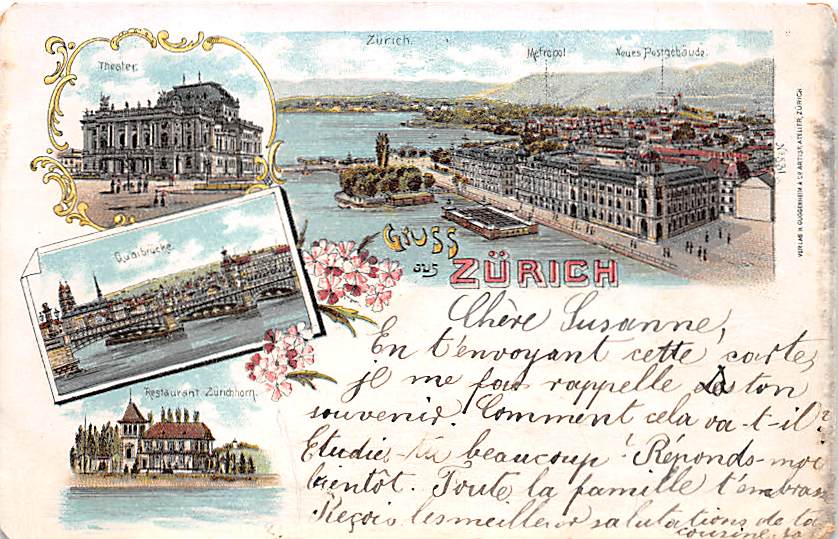 Theater.
Zürich.
Metropol
Neues Postgebäude.
Quaibrücke
Gruss
aus ZÜRICH
Restaurant Zürichhorn.
VERLAG H. GUGGENHEIM & Co ARTIST. ATELIER, ZÜRICH.
Chère Susanne,
En t'envoyant cette carte,
je me fais rappelle à ton
souvenir. Comment cela va-t-il?
Etudies-tu beaucoup? Réponds-moi
bientôt. Toute la famille t'embrass
Reçois les meilleur salutations de ta
cousine